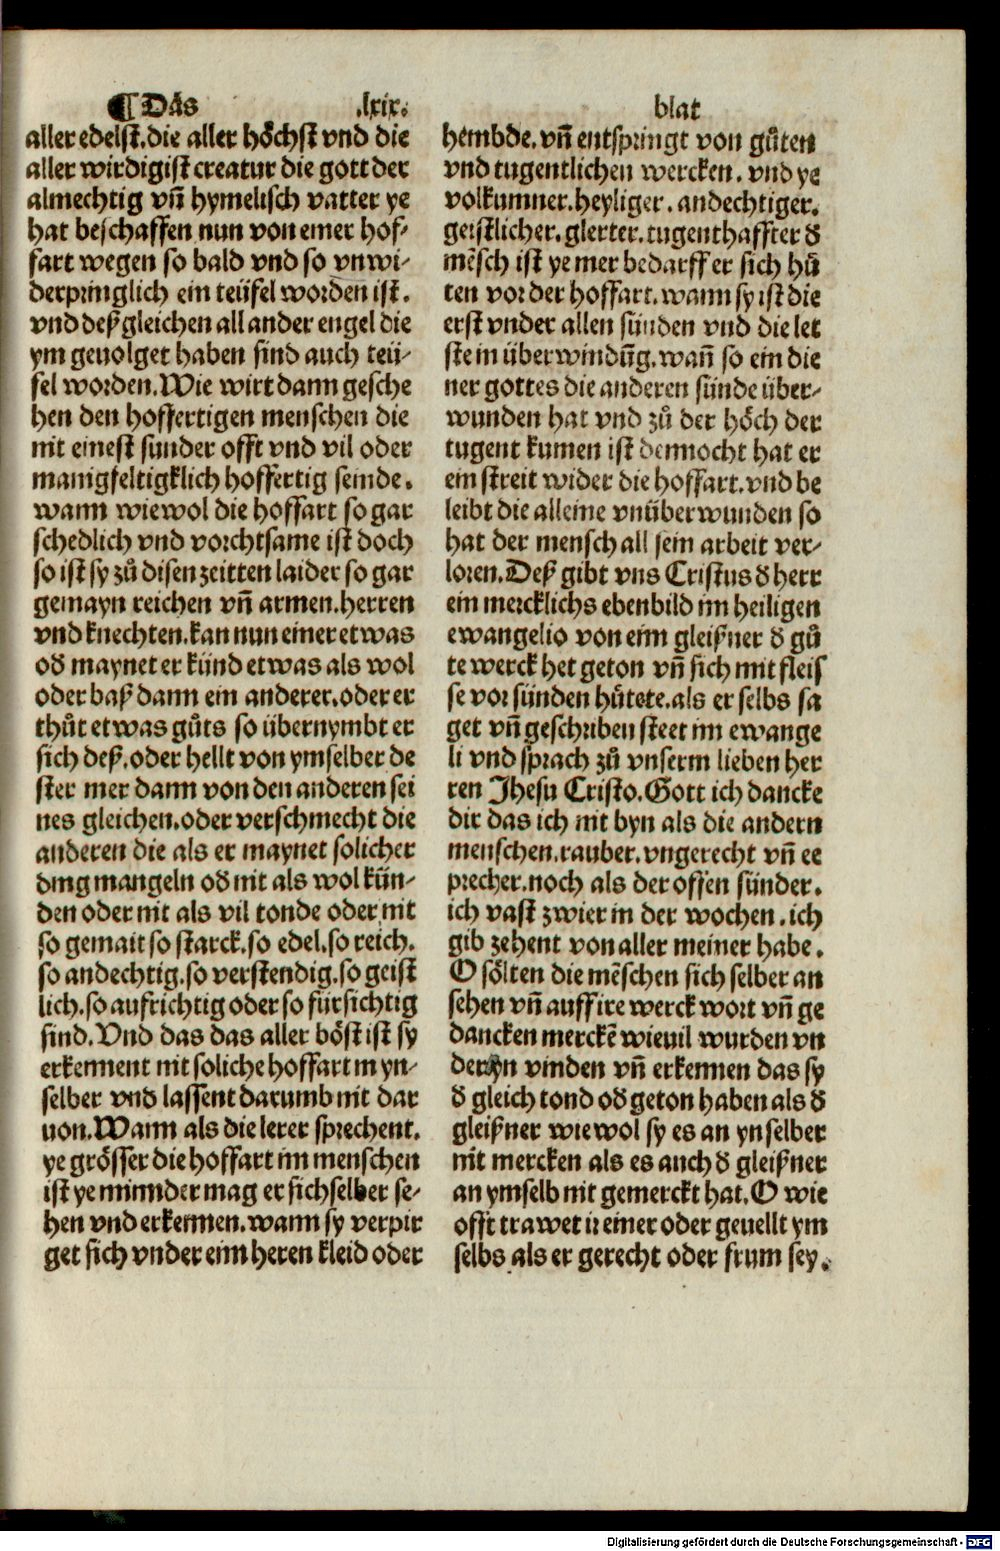 ¶ Das .lxix. blat
aller edelst.die aller höchst vnd die
aller wirdigist creatur die gott der
almechtig vñ hymelisch vatter ye
hat beschaffen nun von einer hof⸗
fart wegen so bald vnd so vnwi⸗
derpringlich ein teüfel worden ist.
vnd deßgleichen all ander engel die
ym geuolget haben sind auch teü⸗
fel worden.Wie wirt dann gesche
hen den hoffertigen menschen die
nit einest sunder offt vnd vil oder
manigfeltigklich hoffertig seinde.
wann wiewol die hoffart so gar
schedlich vnd vorchtsame ist doch
so ist sy zů disen zeitten laider so gar
gemayn reichen vñ armen.herren
vnd knechten.kan nun einer etwas
od maynet er künd etwas als wol
oder baß dann ein anderer.oder er
thůt etwas gůts so übernymbt er
sich deß.oder hellt von ymselber de
ster mer dann von den anderen sei
nes gleichen.oder verschmecht die
anderen die als er maynet solicher
ding mangeln od nit als wol kün⸗
den oder nit als vil tonde oder nit
so gemait so starck.so edel.so reich.
so andechtig.so verstendig.so geist
lich.so aufrichtig oder so fürsichtig
sind.Vnd das das aller böst ist sy
erkennent nit soliche hoffart in yn⸗
selber vnd lassent darumb nit dar
uon.Wann als die lerer sprechent.
ye grösser die hoffart im menschen
ist ye minnder mag er sichselber se⸗
hen vnd erkennen.wann sy verpir
get sich vnder eim heren kleid oder
hembde.vñ entspringt von gůten
vnd tugentlichen wercken.vnd ye
volkumner.heyliger.andechtiger.
geistlicher.glerter.tugenthaffter d
mẽsch ist ye mer bedarff er sich hů
ten vor der hoffart.wann sy ist die
erst vnder allen sünden vnd die let
ste in überwindũg.wañ so ein die
ner gottes die anderen sünde über⸗
wunden hat vnd zů der höch der
tugent kumen ist dennocht hat er
ein streit wider die hoffart.vnd be
leibt die alleine vnüberwunden so
hat der mensch all sein arbeit ver⸗
loren.Deß gibt vns Cristus d herr
ein mercklichs ebenbild im heiligen
ewangelio von eim gleißner d gů
te werck het geton vñ sich mit fleis
se vor sünden hůtete.als er selbs sa
get vñ geschriben steet im ewange
li vnd sprach zů vnserm lieben her
ren Jhesu Cristo.Gott ich dancke
dir das ich nit byn als die andern
menschen.rauber.vngerecht vñ ee
precher.noch als der offen sünder.
ich vast zwier in der wochen.ich
gib zehent von aller meiner habe.
O sölten die mẽschen sich selber an
sehen vñ auff ire werck wort vñ ge
dancken merckẽ wieuil wurden vn
der yn vinden vñ erkennen das sy
d gleich tond od geton haben als d
gleißner wiewol sy es an ynselber
nit mercken als es auch d gleißner
an ymselb nit gemerckt hat.O wie
offt trawet ir einer oder geuellt ym
selbs als er gerecht oder frum sey.
Digitalisierung gefördert durch die Deutsche Forschungsgemeinschaft - DFG